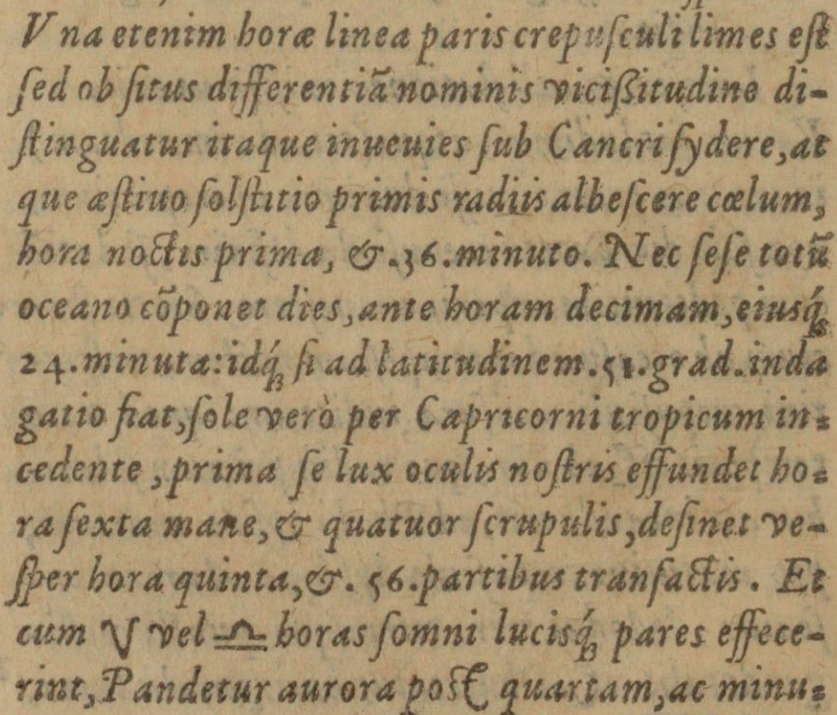 Vna etenim horæ linea paris crepuſculi limes eſt
ſed ob ſitus differentiã nominis viciſſitudine di-
ſtinguatur itaque inueuies ſub Cancri ſydere, at
que æſtiuo ſolſtitio primis radiis albeſcere cœlum,
hora noctis prima, &.36.minuto. Nec ſeſe totũ
oceano cõponet dies, ante horam decimam, eiusq́;
24.minuta: idq́; ſi ad latitudinem.51.grad.inda
gatio fiat, ſole verò per Capricorni tropicum in-
cedente, prima ſe lux oculis noſtris effundet ho-
ra ſexta mane, & quatuor ſcrupulis, deſinet ve-
ſper hora quinta, &. 56.partibus tranſactis. Et
cum ♈ vel ♎ horas ſomni lucisq́; pares effece-
rint, Pandetur aurora poſt quartam, ac minu-